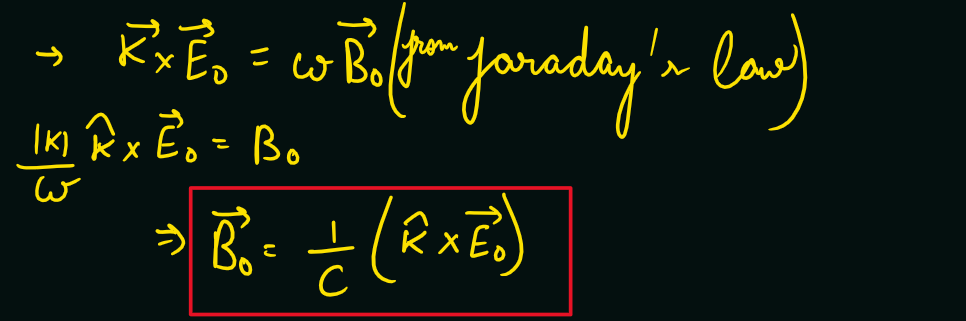 → K⃗ × E⃗₀ = ω B⃗₀ (from faraday's law)
|K|/ω K̂ × E⃗₀ = B₀
⇒ B⃗₀ = 1/C (K̂ × E⃗₀)